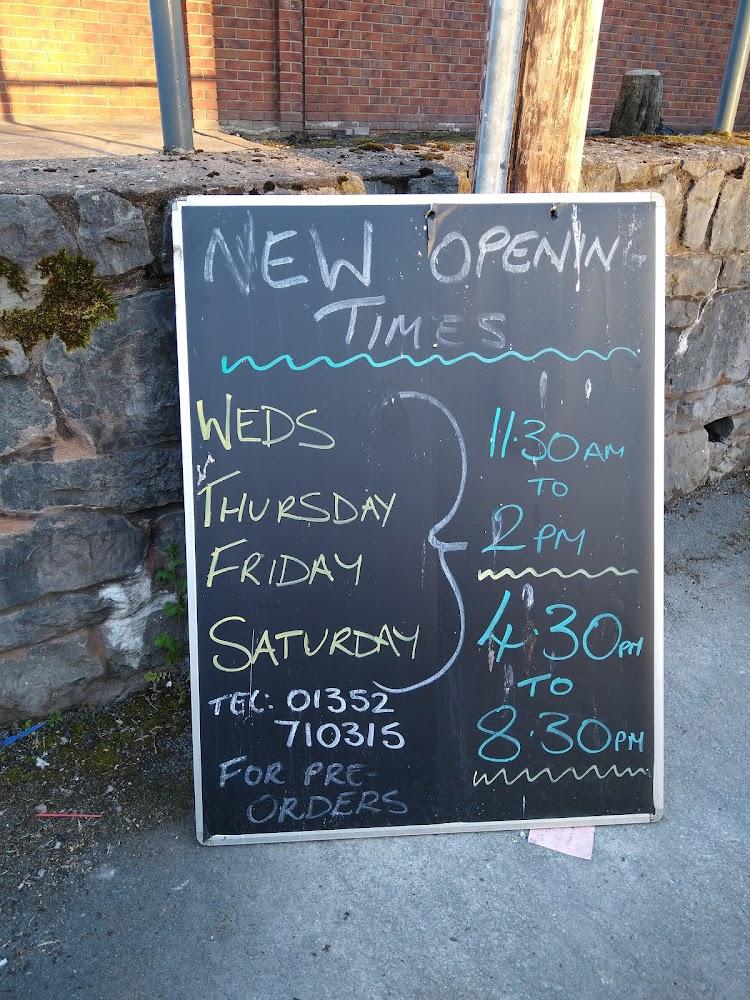 NEW OPENING
TIMES
WEDS
THURSDAY
FRIDAY
SATURDAY
11.30AM
TO
2PM
4.30PM
TO
8.30PM
TEL: 01352
710315
FOR PRE-
ORDERS